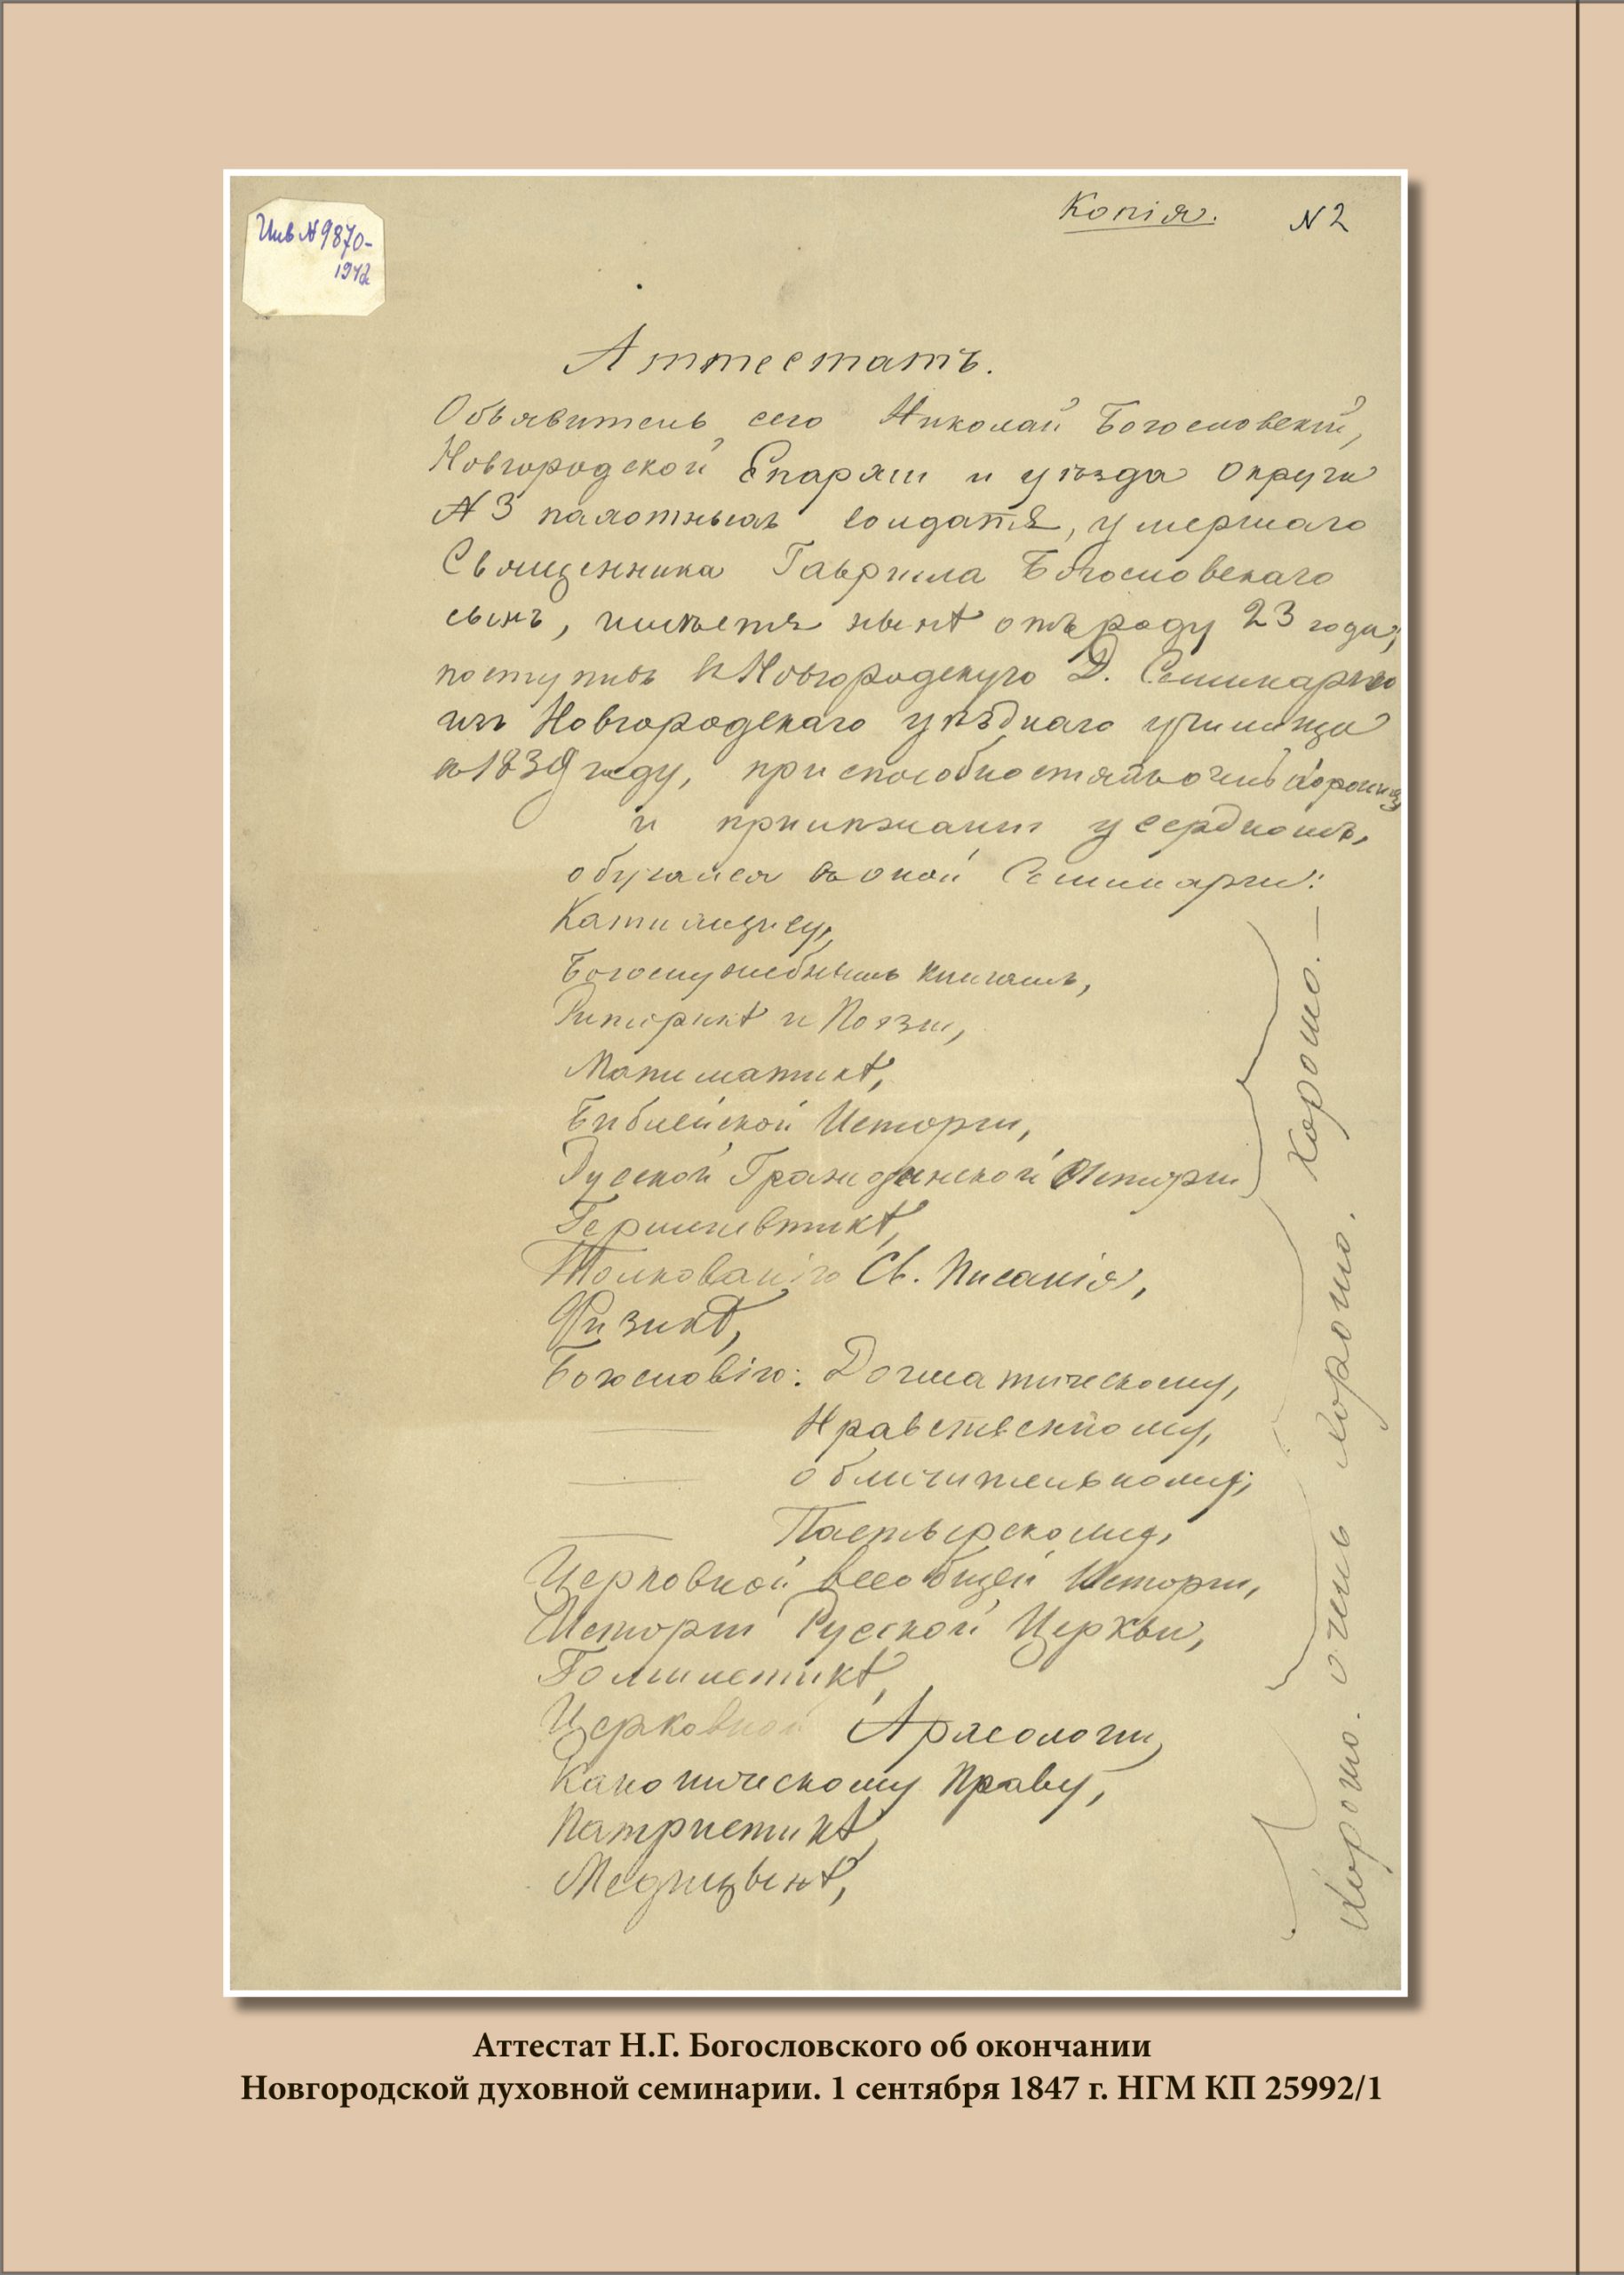 Инв №9870-
1942
Копія.
N 2
Аттестатъ.
Объявитель сего Николай Богословскій,
Новгородской Епархіи и уѣзда Округи
№ 3 пахотныхъ солдатъ, умершаго
Священника Гавріила Богословскаго
сынъ, имѣетъ нынѣ отъ роду 23 года,
поступивъ въ Новгородскую Д. Семинарію
изъ Новгородскаго уѣзднаго училища
въ 1839 году, при способностяхъ очень хорошихъ
и прилежаніи усердномъ,
обучался въ оной Семинаріи:
Катихизису,
Богослужебнымъ книгамъ,
Риторикѣ и Поэзіи,
Математикѣ,
Библейской Исторіи,
Русской Гражданской Исторіи
Хорошо. —
Герменевтикѣ,
Толкованію Св. Писанія,
Физикѣ,
Богословію: Догматическому,
Нравственному,
Обличительному,
Пастырскому,
Церковной всеобщей Исторіи,
Исторіи Русской Церкви,
Гомилетикѣ,
очень хорошо.
Церковной Археологіи,
Каноническому Праву,
Патристикѣ,
Медицынѣ,
Хорошо.
Аттестат Н.Г. Богословского об окончании
Новгородской духовной семинарии. 1 сентября 1847 г. НГМ КП 25992/1